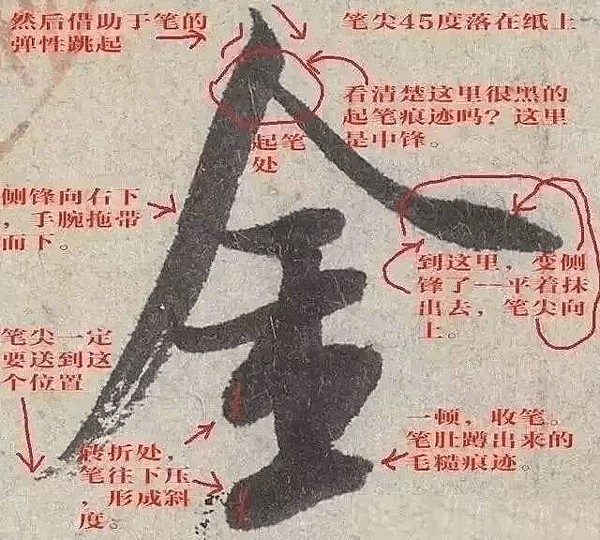 然后借助于笔的
弹性跳起
笔尖45度落在纸上
看清楚这里很黑的
起笔痕迹吗？这里
是中锋。
起笔
处
侧锋向右下
，手腕拖带
而下。
到这里，变侧
锋了--平着抹
出去，笔尖向
上。
笔尖一定
要送到这
个位置
一顿，收笔。
笔肚蹲出来的
毛糙痕迹。
转折处，
笔往下压
，形成斜
度。
金